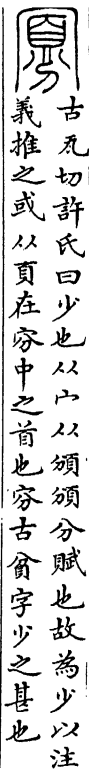 寡
古瓦切許氏曰少也从宀从頒頒分賦也故為少以注
義推之或从頁在穷中之首也穷古貧字少之甚也